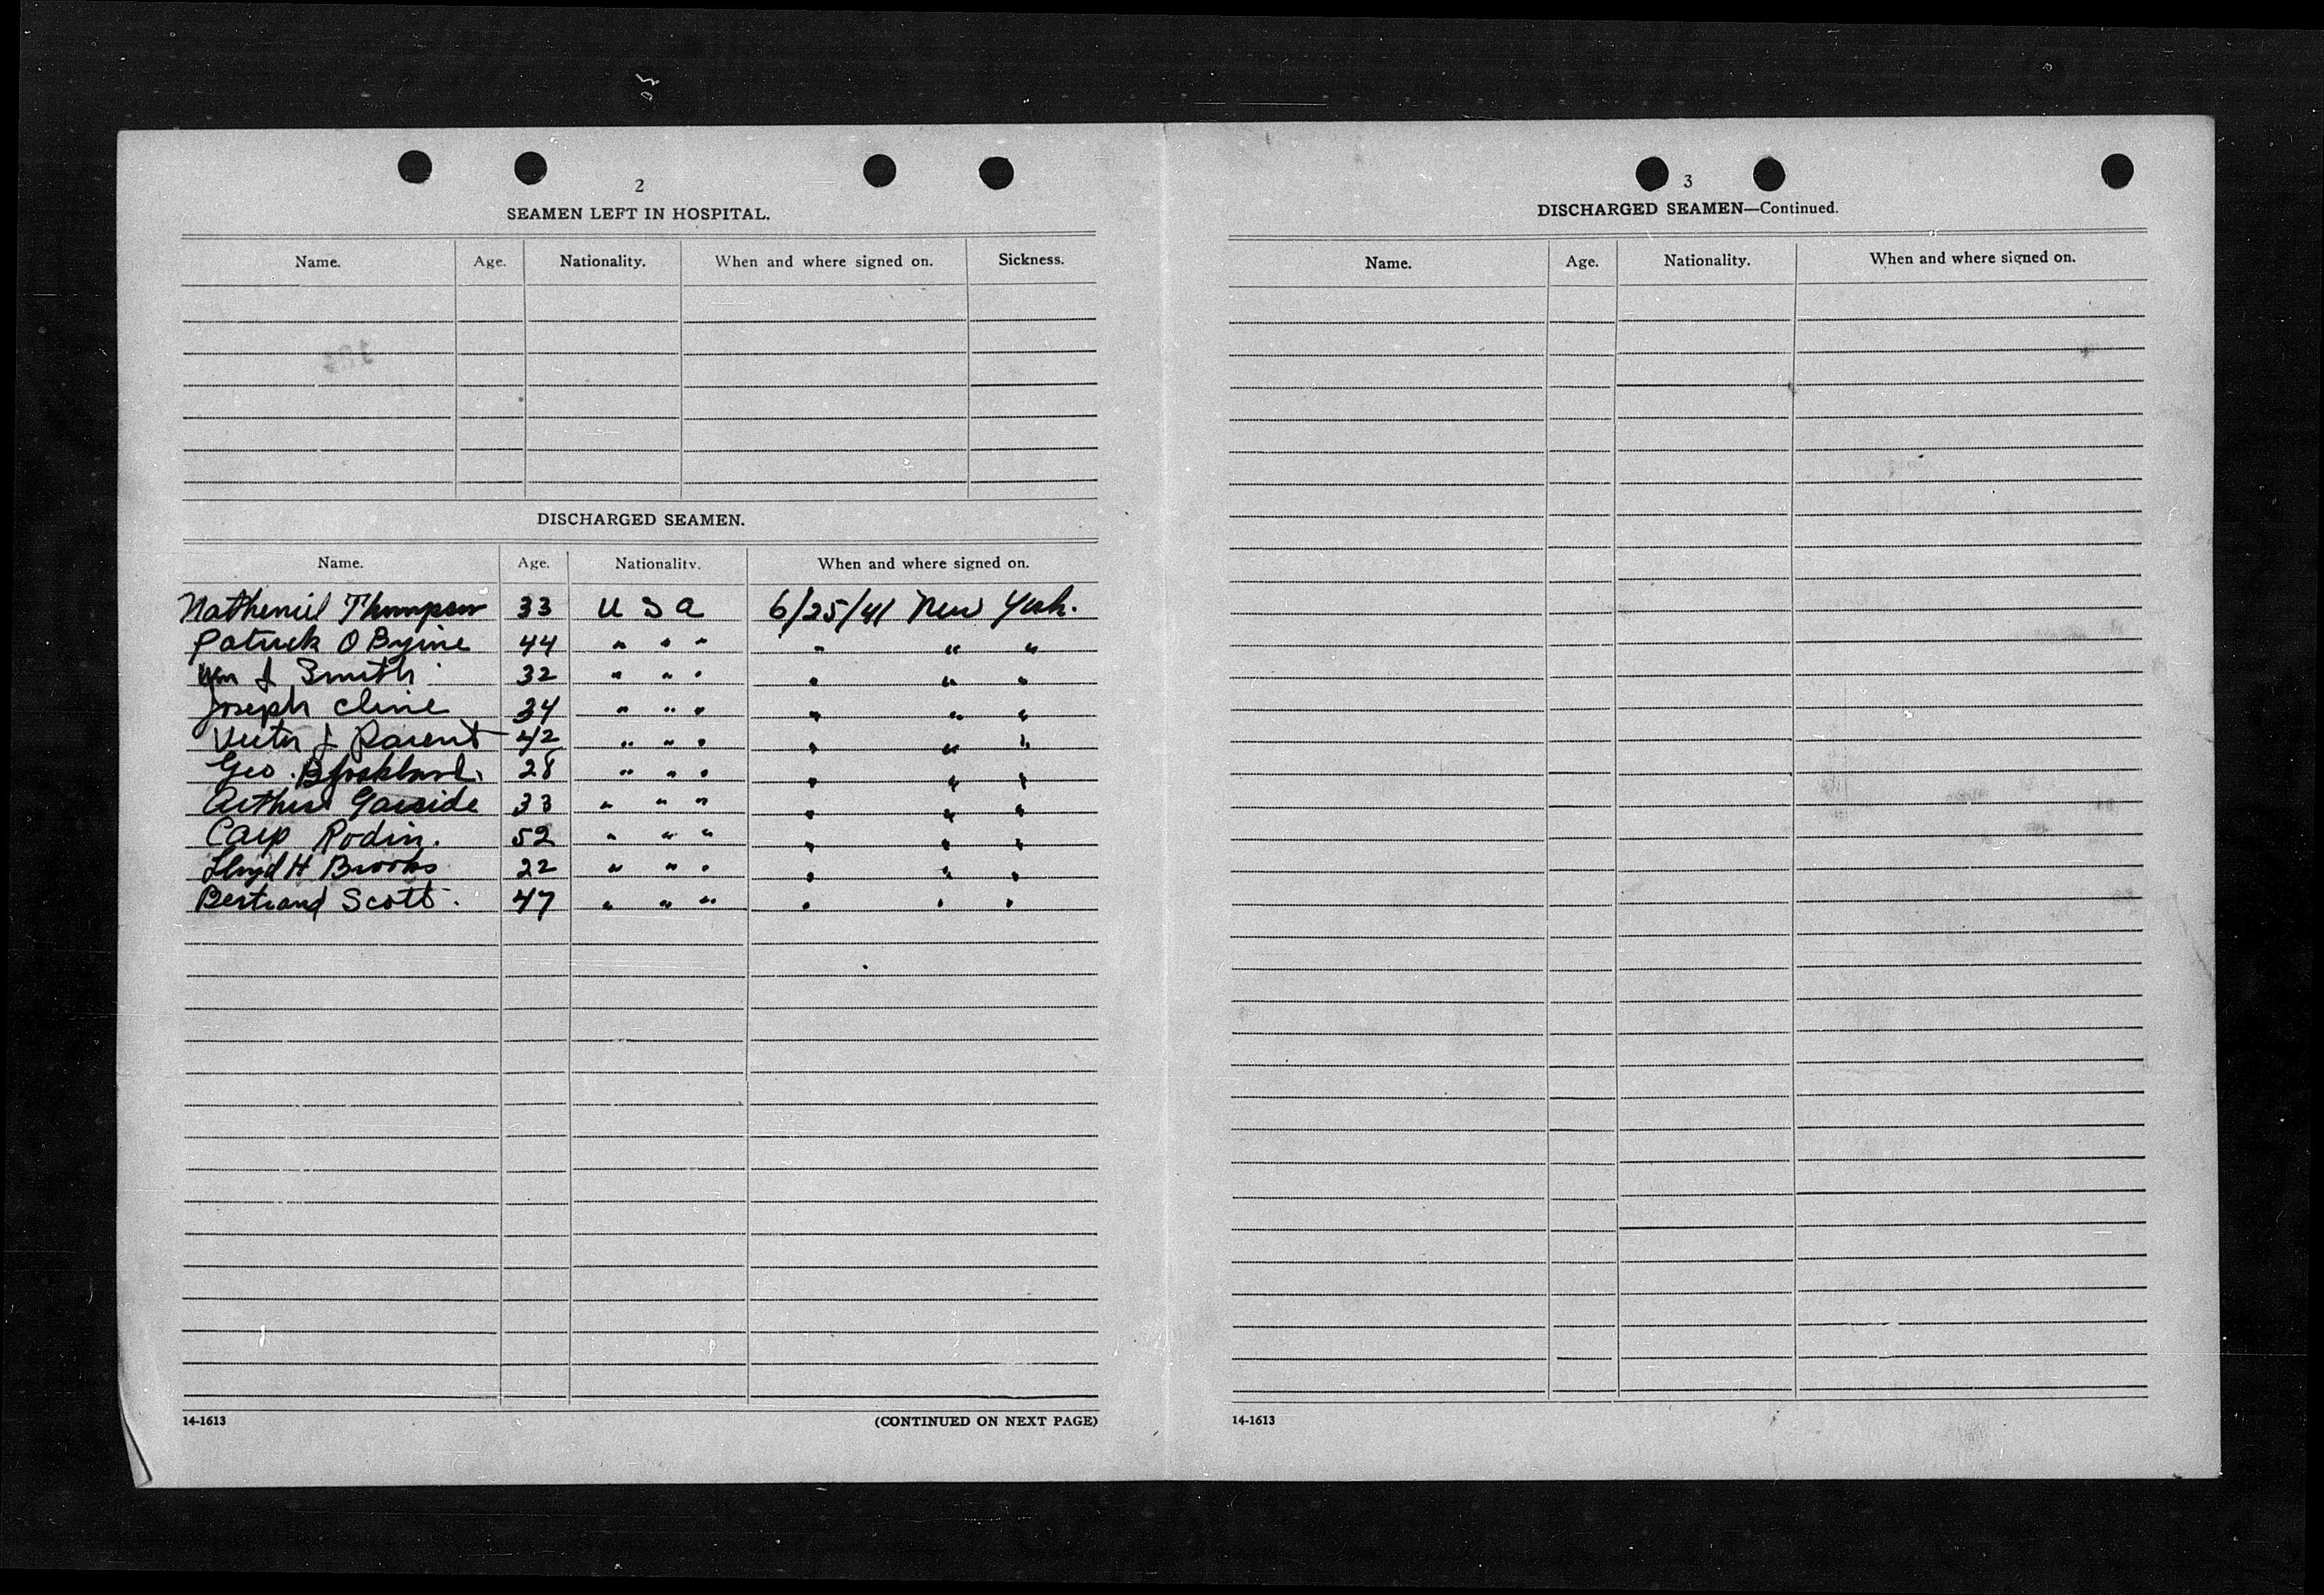 2
SEAMEN LEFT IN HOSPITAL.
Name. Age. Nationality. When and where signed on. Sickness.
DISCHARGED SEAMEN.
Name. Age. Nationality. When and where signed on.
Natheniel Thompson 33 U S A 6/25/41 New York.
Patrick O Byrne 44 " " " " " "
Wm J Smith 32 " " " " " "
Joseph Cline 34 " " " " " "
Victor J Parent 42 " " " " " "
Geo. 28 " " " " " "
Arthur Garside 33 " " " " " "
Carp Rodin. 52 " " " " " "
Lloyd H Brooks 22 " " " " " "
Bertrand Scott. 47 " " " " " "
14-1613
(CONTINUED ON NEXT PAGE)
3
DISCHARGED SEAMEN—Continued.
Name. Age. Nationality. When and where signed on.
14-1613